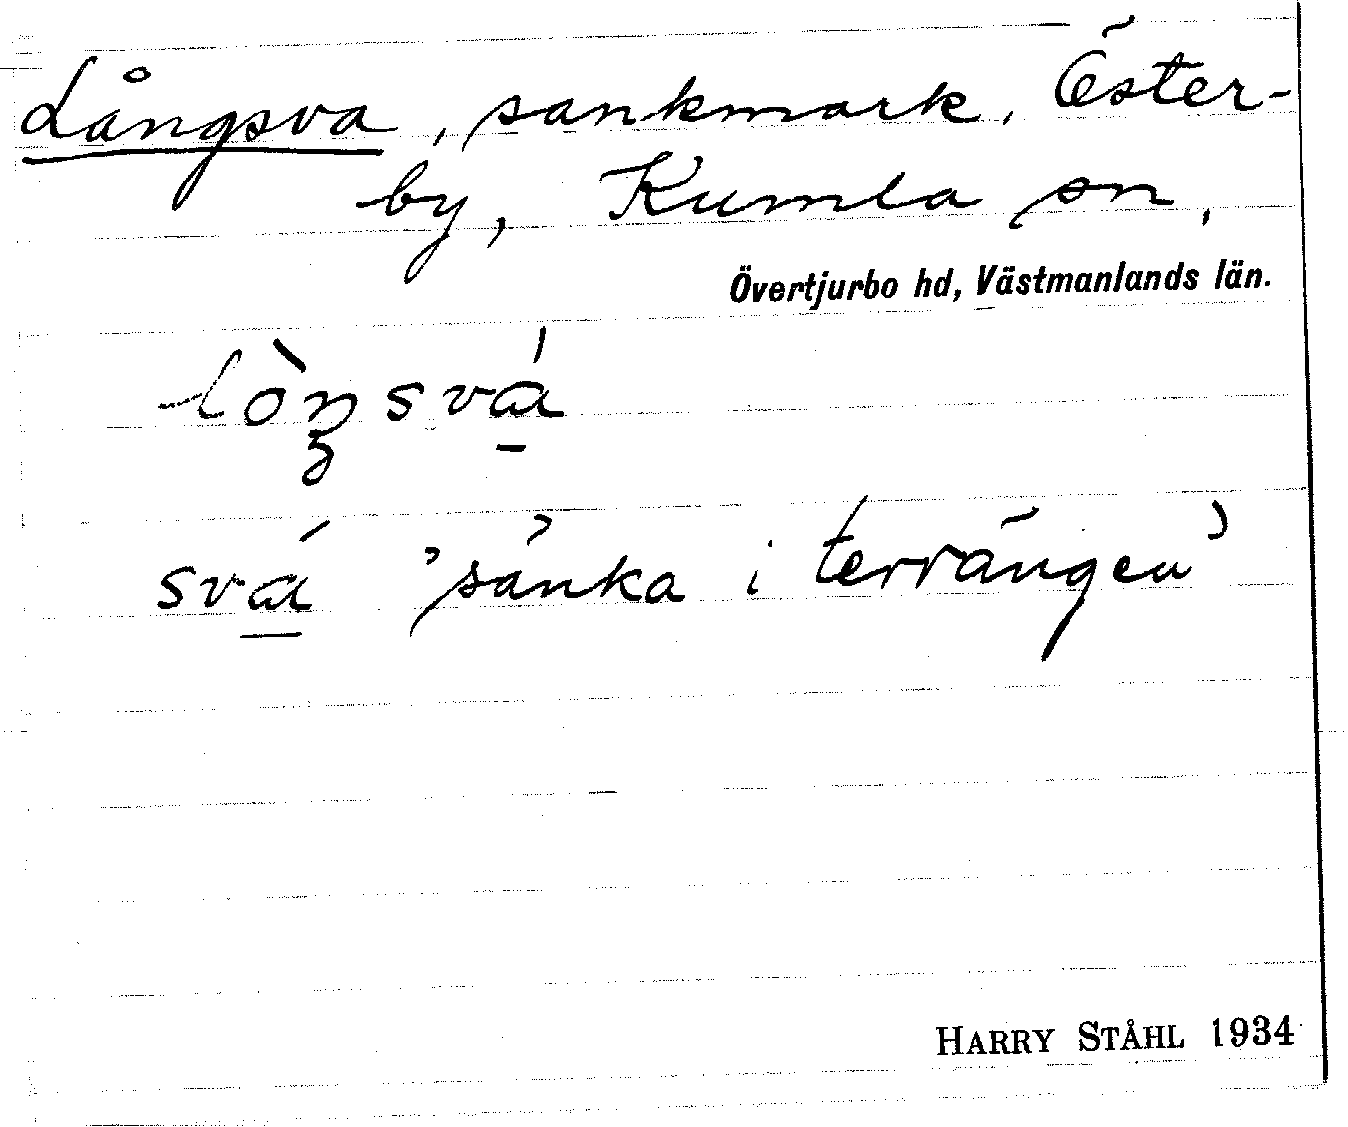 Långsva, sankmark, Öster-
by, Kumla sn,
Övertjurbo hd, Västmanlands län.
lòŋsvá̱
svá̱ 'sänka i terrängen'
HARRY STÅHL 1934